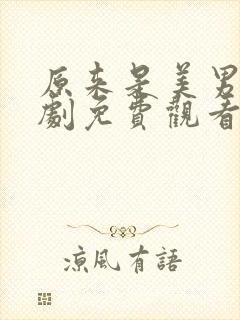 原来是美男
劇免費觀看
涼風有語